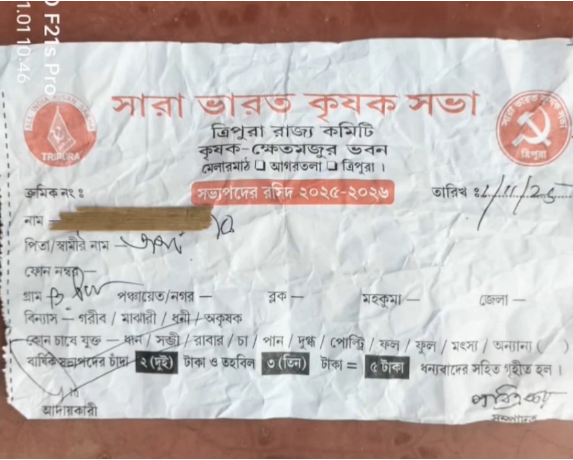 সারা ভারত কৃষক সভা
ত্রিপুরা রাজ্য কমিটি
কৃষক-ক্ষেতমজুর ভবন
মেলারমাঠ ❑ আগরতলা ❑ ত্রিপুরা ।
TRIPURA
ত্রিপুরা
ক্রমিক নং ঃ
সভ্যপদের রসিদ ২০২৫-২০২৬
তারিখ ঃ
নাম –
পিতা/স্বামীর নাম –
ফোন নম্বর –
গ্রাম পঞ্চায়েত/নগর – ব্লক – মহকুমা – জেলা –
বিন্যাস – গরীব / মাঝারী / ধনী / অকৃষক
কোন চাষে যুক্ত – ধান / সব্জী / রাবার / চা / পান / দুগ্ধ / পোল্ট্রি / ফল / ফুল / মৎস্য / অন্যান্য ( )
বার্ষিক সভ্যপদের চাঁদা ২ (দুই) টাকা ও তহবিল ৩ (তিন) টাকা = ৫ টাকা ধন্যবাদের সহিত গৃহীত হল ।
আদায়কারী
সম্পাদক
F21s Pro
1.01 10:46